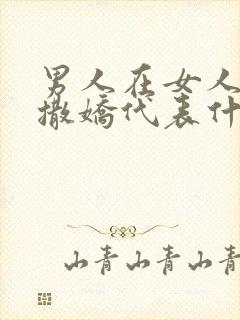 男人在女人
撒嬌代表什
山青山青山青